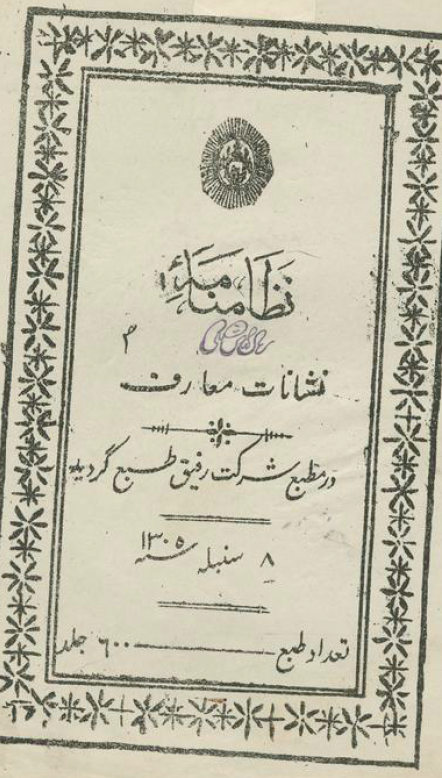 نظامنامهٔ
نشانات معارف
در مطبع شرکت رفیق طبع گردید
۸ سنبله سنه ۱۳۰۵
تعداد طبع ۶۰۰ جلد